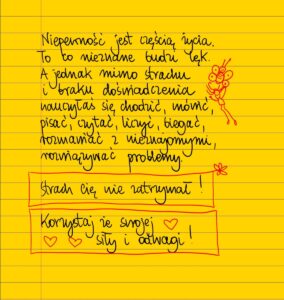 Niepewność jest częścią życia.
To to nieznane budzi lęk.
A jednak mimo strachu
i braku doświadczenia
nauczyłaś się chodzić, mówić,
pisać, czytać, liczyć, biegać,
rozmawiać z nieznajomymi,
rozwiązywać problemy.
Strach Cię nie zatrzymał!
Korzystaj ze swojej
siły i odwagi!